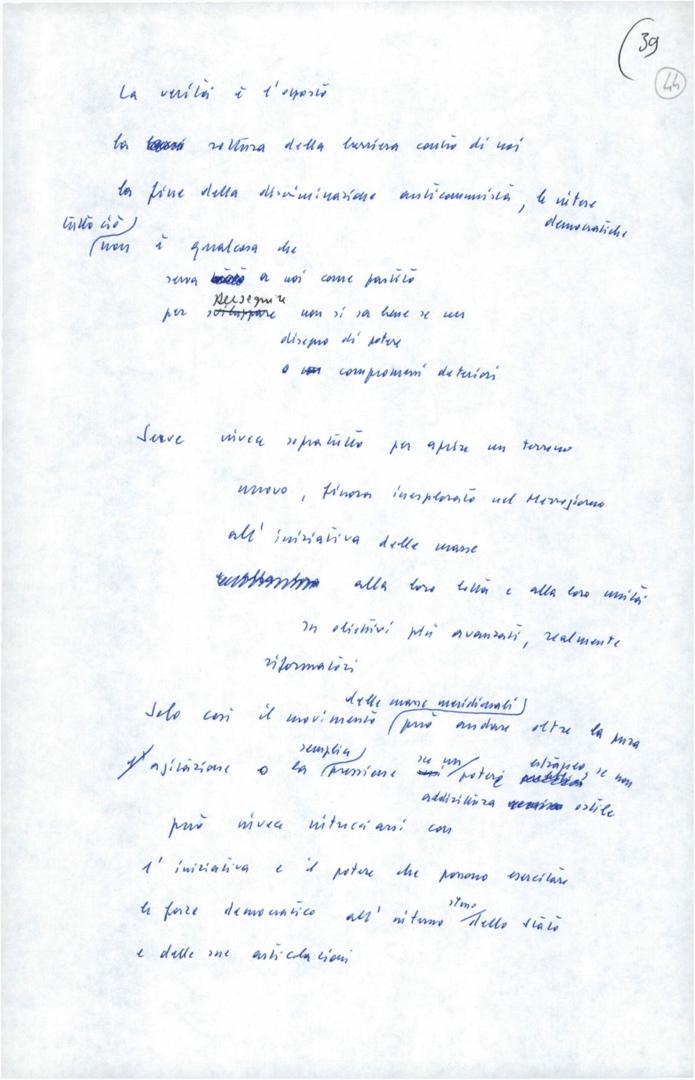 39
44
La verità è l'opposto
la rottura della barriera contro di noi
la fine della discriminazione anticomunista, le intese
democratiche
tutto ciò
non è qualcosa che
serva a noi come partito
perseguire
per sviluppare non si sa bene se un
disegno di potere
o compromessi deteriori
Serve invece sopratutto per aprire un terreno
nuovo, finora inesplorato nel Mezzogiorno
all'iniziativa delle masse
alla loro lotta e alla loro unità
su obiettivi più avanzati, realmente
riformatori
delle masse meridionali
Solo così il movimento può andare oltre la pura
semplice su un estraneo se non
agitazione o la pressione potere
addirittura ostile
può invece intrecciarsi con
l'iniziativa e il potere che possono esercitare
stesso
le forze democratico all'interno dello Stato
e delle sue articolazioni